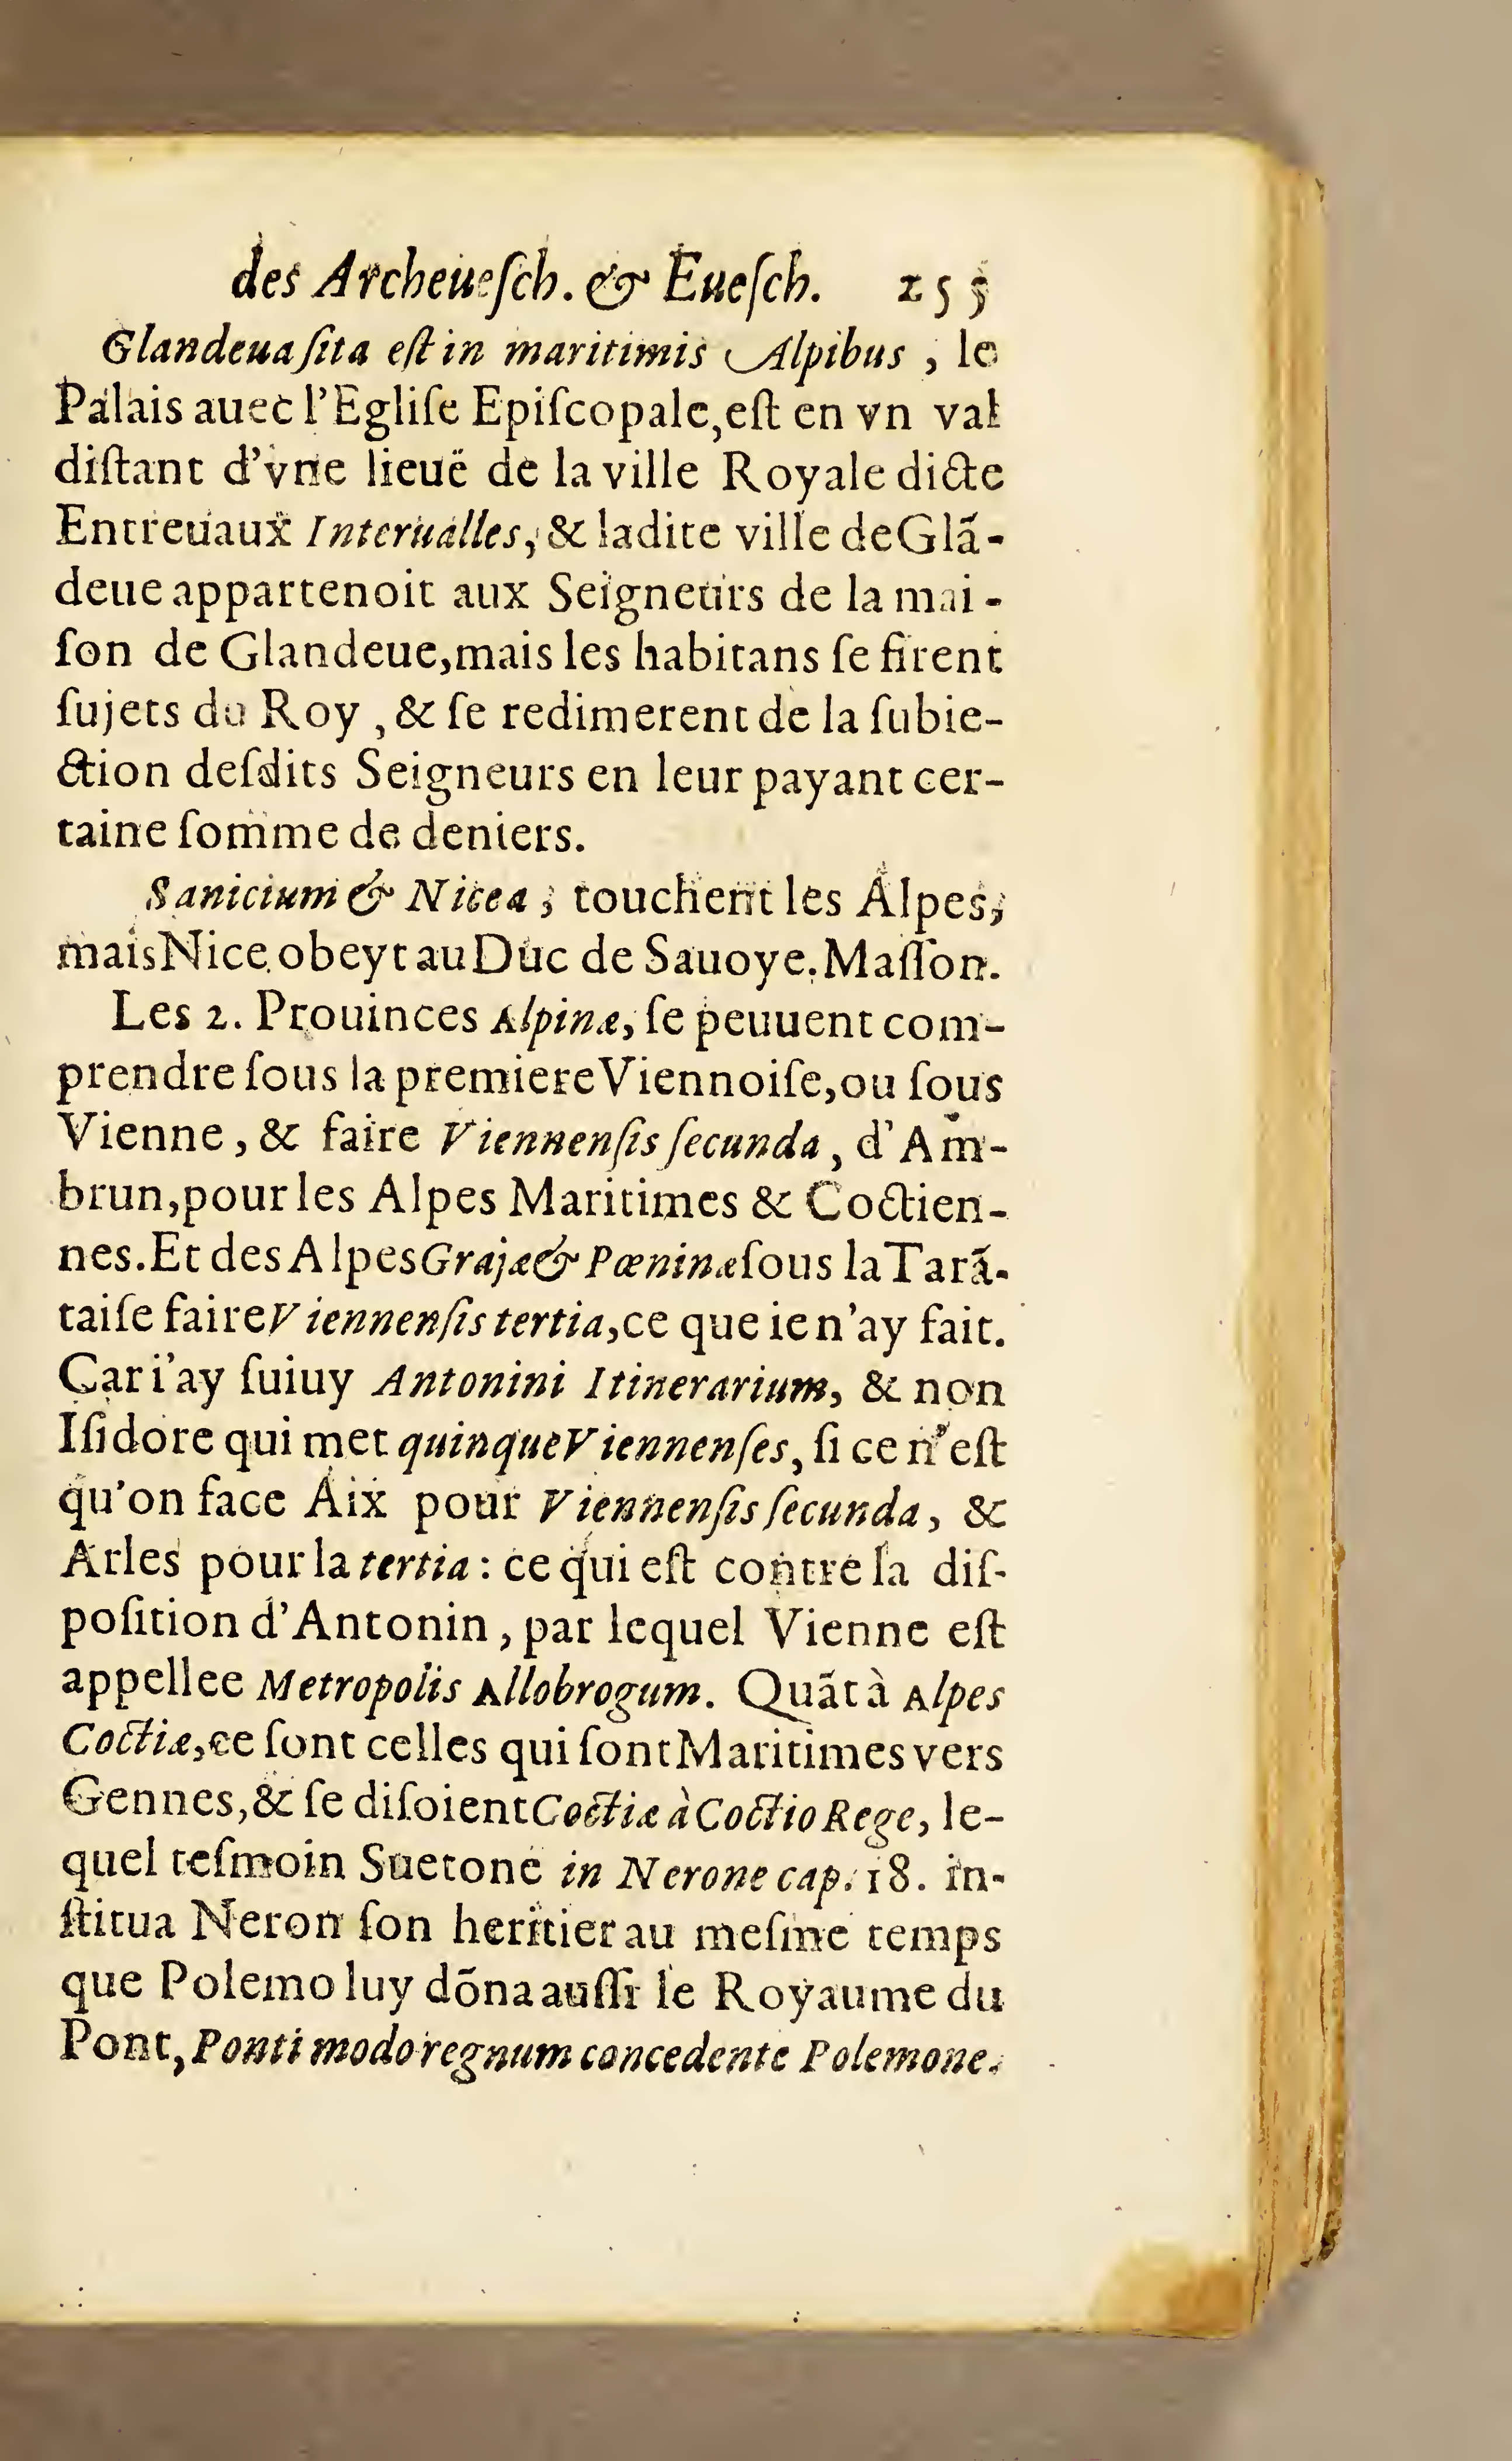 des Archeueſch. & Eueſch. 255
Glandeua ſita eſt in maritimis Alpibus , le
Palais auec l'Egliſe Epiſcopale, eſt en vn val
diſtant d'vne lieuë de la ville Royale dicte
Entreuaux Interualles, & ladite ville de Glã-
deue appartenoit aux Seigneurs de la mai-
ſon de Glandeue, mais les habitans ſe firent
ſujets du Roy , & ſe redimerent de la ſubie-
ction deſdits Seigneurs en leur payant cer-
taine ſomme de deniers.
Sanicium & Nicea ; touchent les Alpes,
mais Nice obeyt au Duc de Sauoye. Maſſon.
Les 2. Prouinces Alpinæ, ſe peuuent com-
prendre ſous la premiere Viennoiſe, ou ſous
Vienne , & faire Viennenſis ſecunda , d'Am-
brun, pour les Alpes Maritimes & Coctien-
nes. Et des Alpes Grajæ & Pœninæ ſous la Tarã-
taiſe faire Viennenſis tertia, ce que ie n'ay fait.
Car i'ay ſuiuy Antonini Itinerarium, & non
Iſidore qui met quinque Viennenſes, ſi ce n'eſt
qu'on face Aix pour Viennenſis ſecunda , &
Arles pour la tertia : ce qui eſt contre la diſ-
poſition d'Antonin , par lequel Vienne eſt
appellee Metropolis Allobrogum. Quãt à Alpes
Coctiæ, ce ſont celles qui ſont Maritimes vers
Gennes, & ſe diſoient Coctiæ à Coctio Rege, le-
quel teſmoin Suetone in Nerone cap. 18. in-
ſtitua Neron ſon heritier au meſme temps
que Polemo luy dõna auſſi le Royaume du
Pont, Ponti modo regnum concedente Polemone.